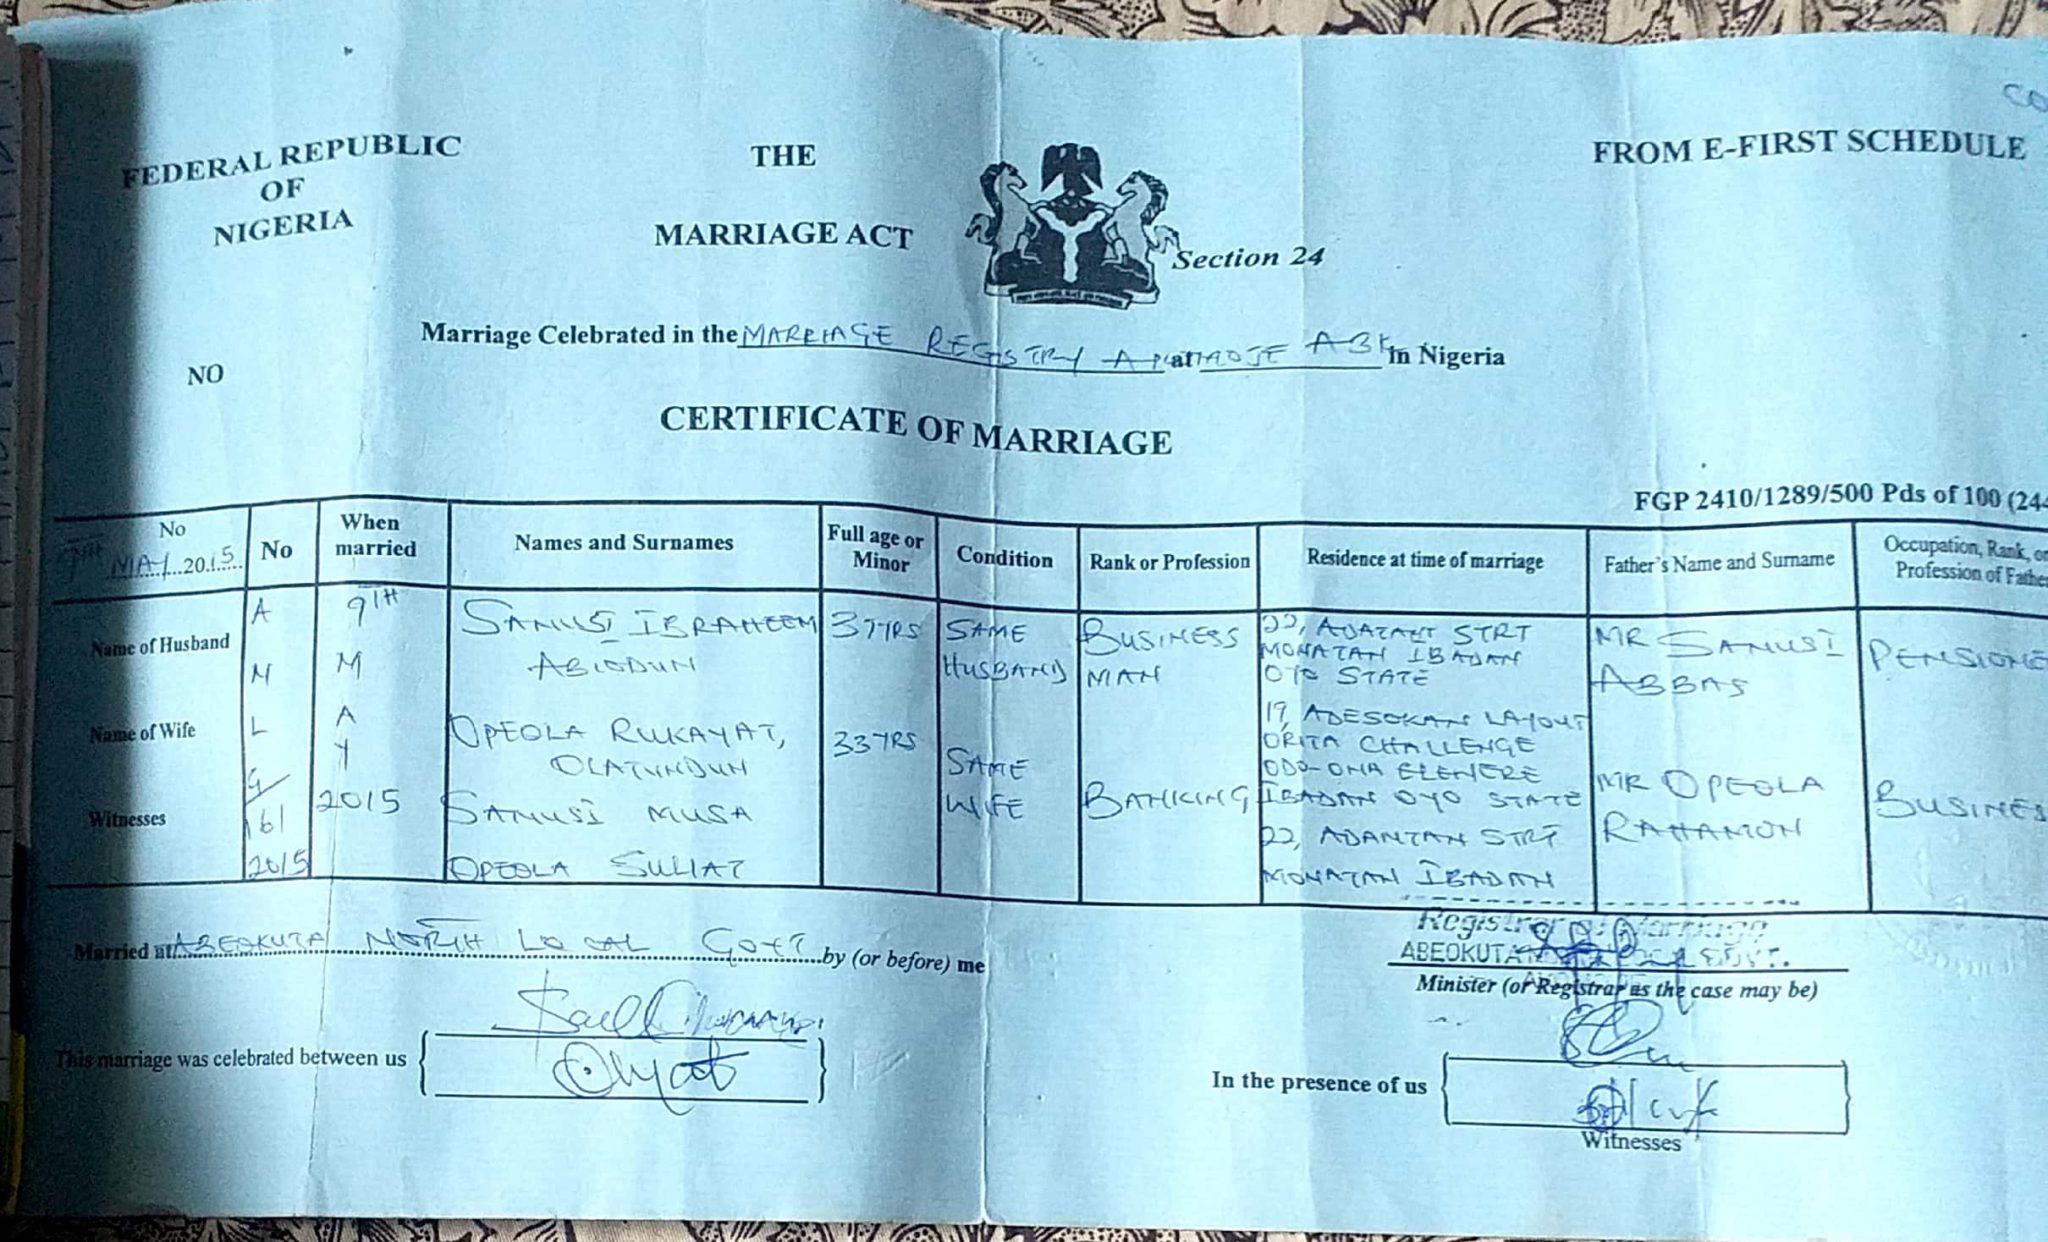 CO
FEDERAL REPUBLIC
OF
NIGERIA
THE
MARRIAGE ACT
Section 24
FROM E-FIRST SCHEDULE
Marriage Celebrated in the MARRIAGE REGISTRY at ABK in Nigeria
NO
CERTIFICATE OF MARRIAGE
FGP 2410/1289/500 Pds of 100 (244
No
MAY 2015
No
When married
Names and Surnames
Full age or Minor
Condition
Rank or Profession
Residence at time of marriage
Father's Name and Surname
Occupation, Rank, or
Profession of Father
Name of Husband
Name of Wife
Witnesses
A
N
L
G/
161
2015
9TH
M
A
Y
2015
SANUSI IBRAHEEM
ABIODUN
OPEOLA RUKAYAT,
OLATUNDUN
SANUSI MUSA
OPEOLA SULIAT
37YRS
33YRS
SAME
HUSBAND
SAME
WIFE
BUSINESS
MAN
BANKING
22, STRT
MONATAN IBADAN
OYO STATE
19, ADESOKAN LAYOUT
ORITA CHALLENGE
ODO-ONA ELEWERE
IBADAN OYO STATE
22, STRT
MONATAN IBADAN
MR SANUSI
ABBAS
MR OPEOLA
RAHAMON
PENSIONE
BUSINES
Married at ABEOKUTA NORTH LOCAL GOVT by (or before) me
Registrar of Marriage
ABEOKUTA GOVT.
Minister (or Registrar as the case may be)
This marriage was celebrated between us
In the presence of us
Witnesses